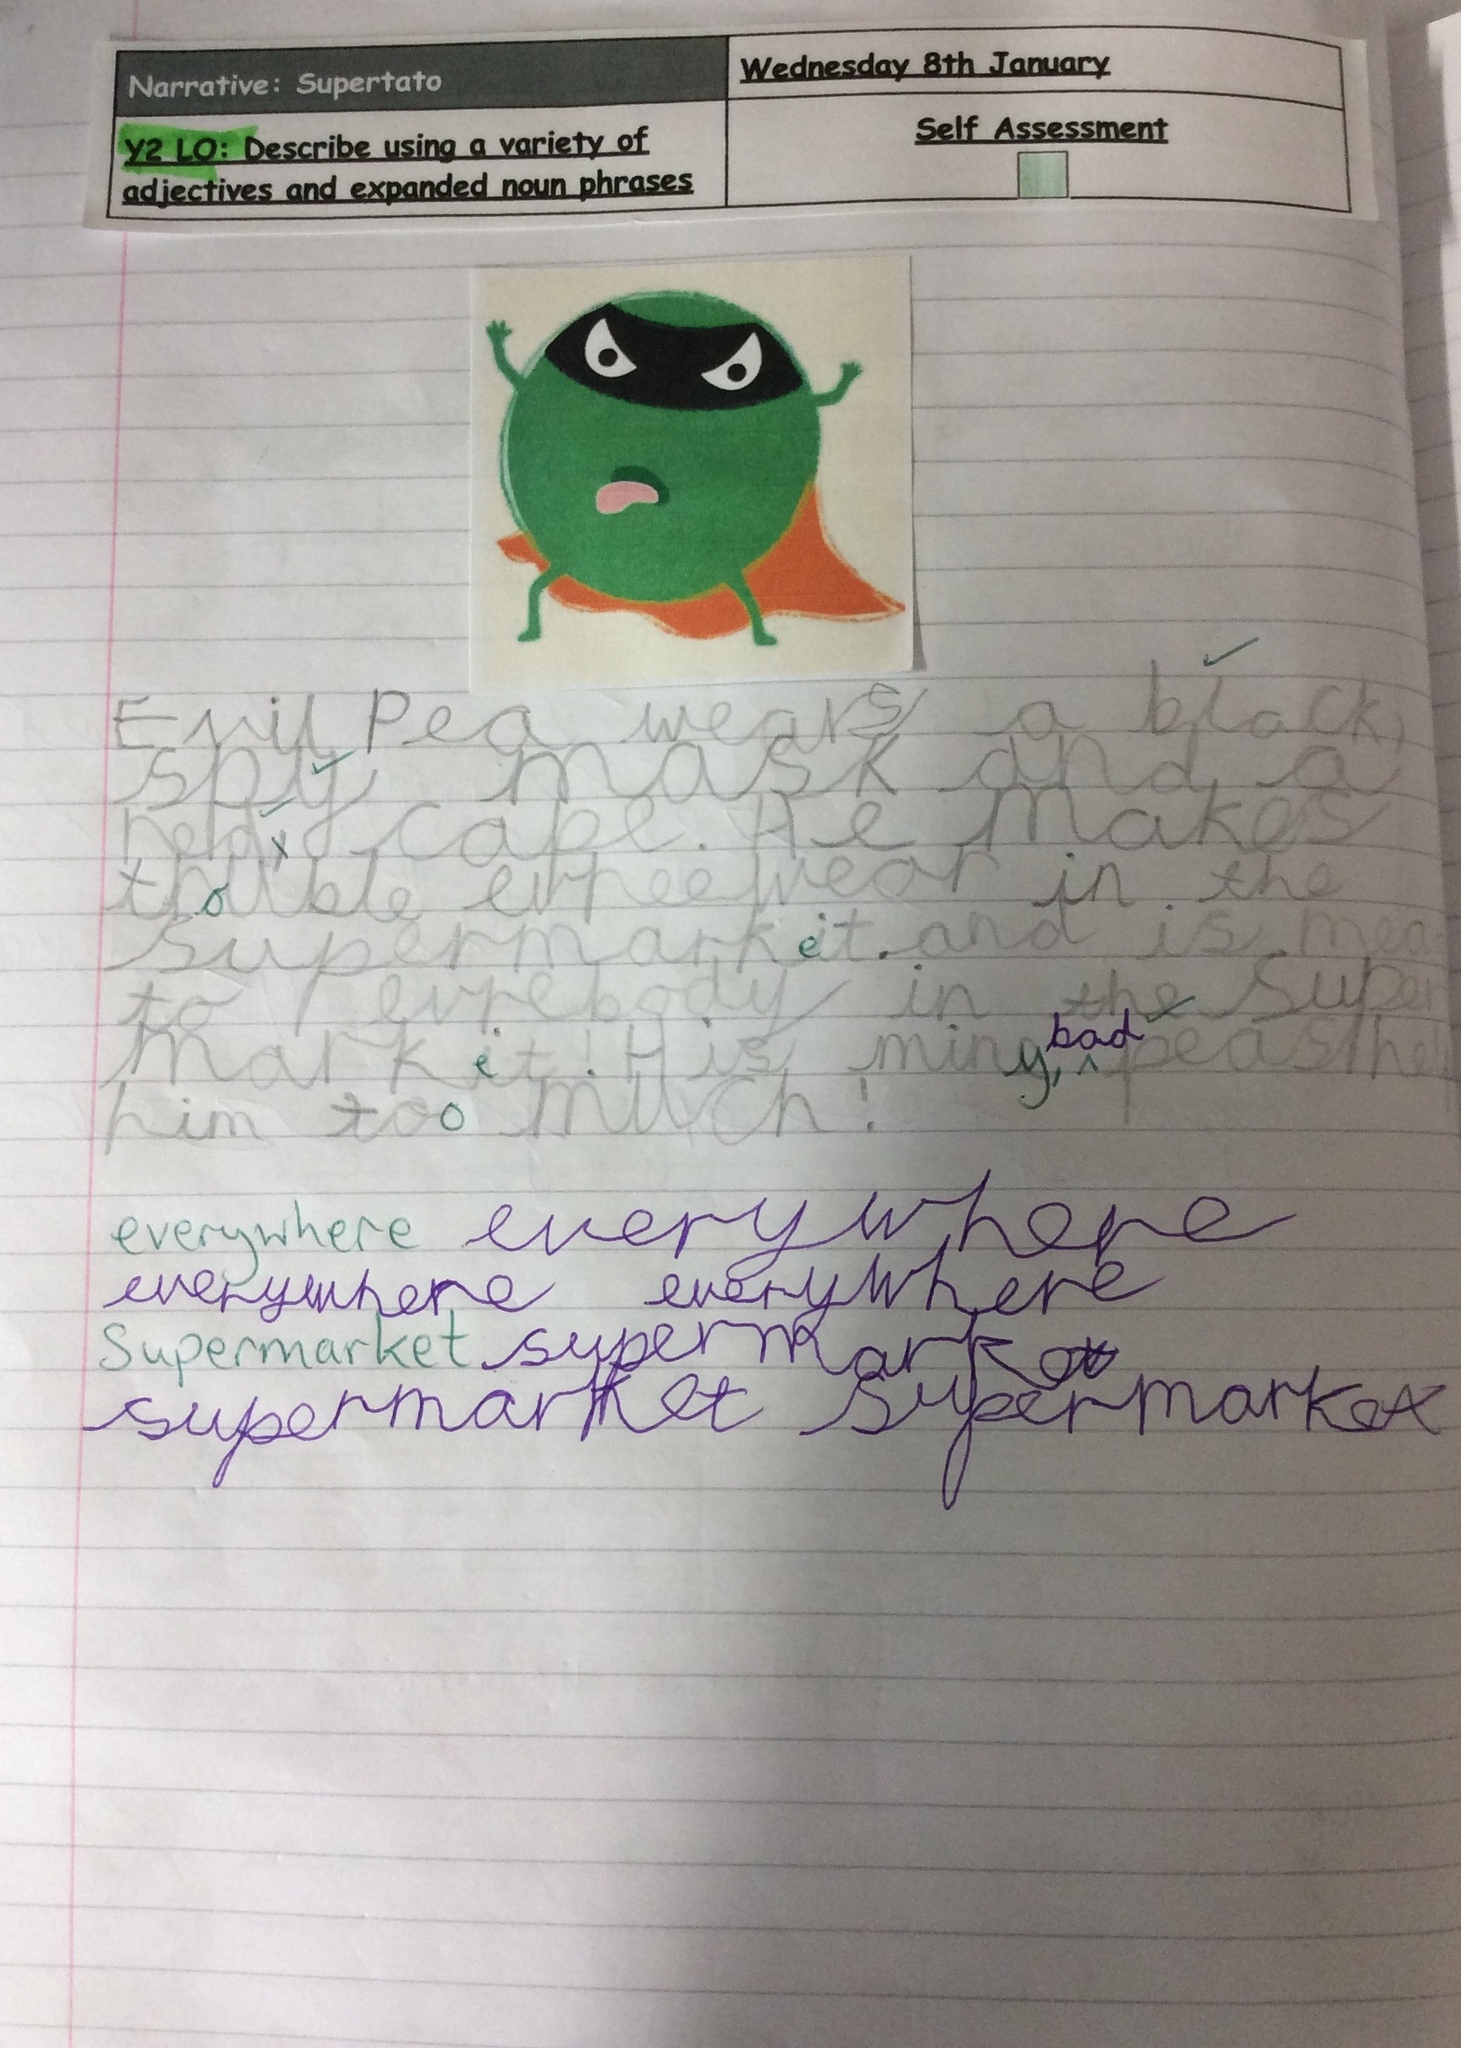 Narrative: Supertato
Wednesday 8th January
Y2 LO: Describe using a variety of
adjectives and expanded noun phrases
Self Assessment
Evil Pea wears a black,
spiy mask and a
red cape. He makes
trouble evreewear in the
supermarket. and is mea
to evrebody in the Super
market! His miny, bad peas
him too much!
everywhere everywhere
everywhere everywhere
Supermarket supermarket
supermarket supermarket